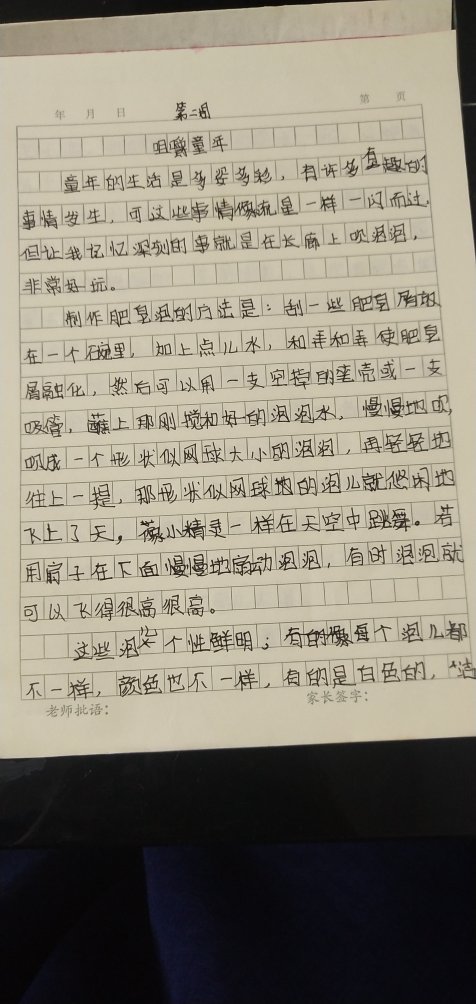 年 月 日 第二周 第 页
咀嚼童年
童年的生活是多姿多彩，有许多有趣的
事情发生，可这些事情像流星一样一闪而过，
但让我记忆深刻的事就是在长廊上吹泡泡，
非常好玩。
制作肥皂泡的方法是：刮一些肥皂屑放
在一个碗里，加上点儿水，和弄和弄使肥皂
屑融化，然后可以用一支空掉的笔壳或一支
吸管，蘸上那刚搅和好的泡泡水，慢慢地吹，
吹成一个形状似网球大小的泡泡，再轻轻地
往上一提，那形状似网球的泡儿就悠闲地
飞上了天，像小精灵一样在天空中跳舞。若
用扇子在下面慢慢地扇动泡泡，有时泡泡就
可以飞得很高很高。
这些泡泡个性鲜明；每个泡儿都
不一样，颜色也不一样，有的是白色的，洁
老师批语： 家长签字：